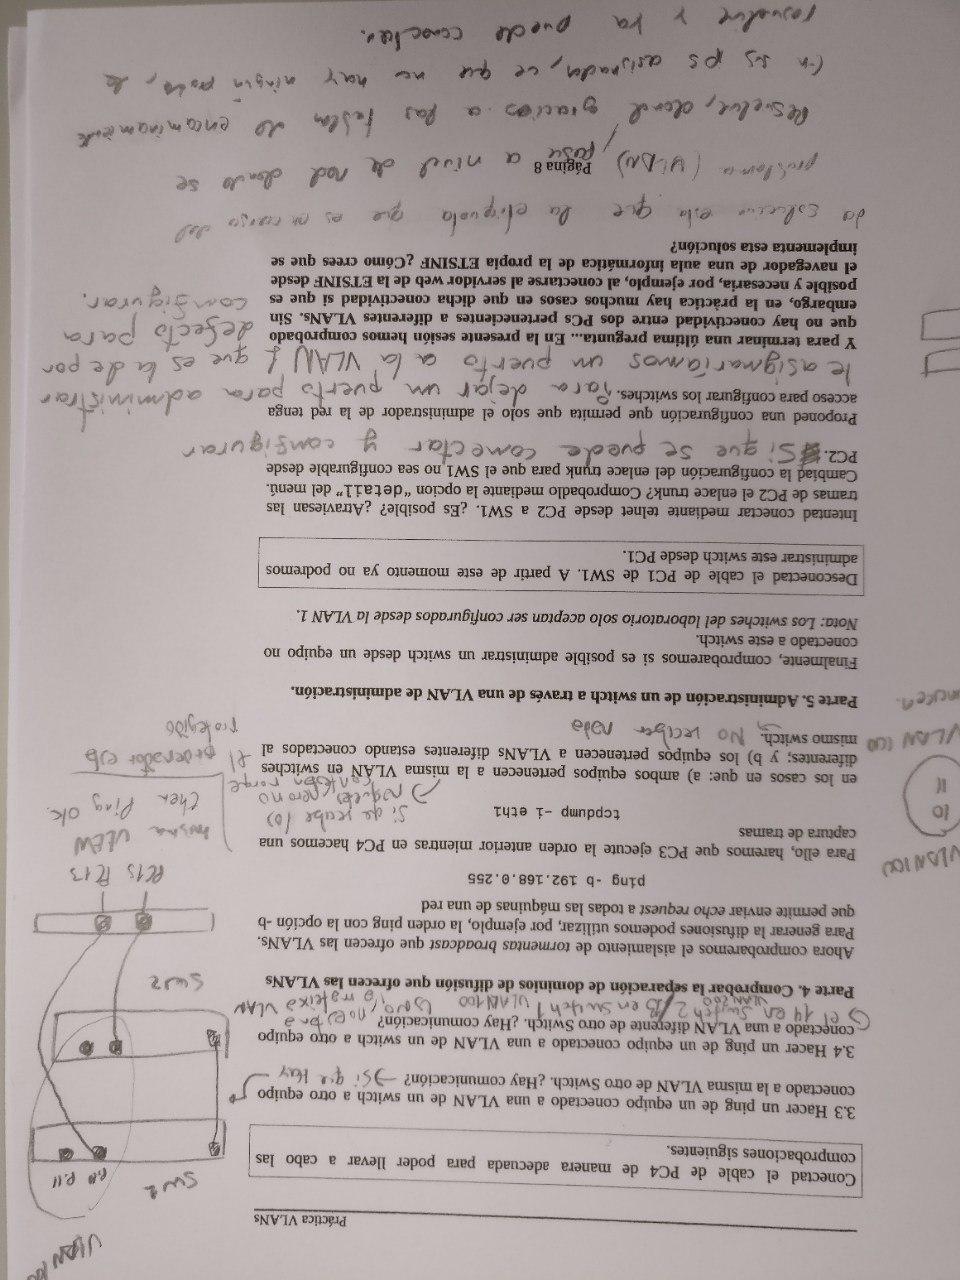 Práctica VLANs
VLAN 100
SW1
P.10 P.11
Conectad el cable de PC4 de manera adecuada para poder llevar a cabo las
comprobaciones siguientes.
3.3 Hacer un ping de un equipo conectado a una VLAN de un switch a otro equipo
conectado a la misma VLAN de otro Switch. ¿Hay comunicación? → Si que Hay
3.4 Hacer un ping de un equipo conectado a una VLAN de un switch a otro equipo
conectado a una VLAN diferente de otro Switch. ¿Hay comunicación?
el 14 en Switch 2 / 13 en switch 1
VLAN 200
VLAN 100
No, no estan a
la mateixa VLAN
SW2
Parte 4. Comprobar la separación de dominios de difusión que ofrecen las VLANs
Ahora comprobaremos el aislamiento de tormentas broadcast que ofrecen las VLANs.
Para generar la difusiones podemos utilizar, por ejemplo, la orden ping con la opción -b
que permite enviar echo request a todas las máquinas de una red
ping -b 192.168.0.255
PC15 PC13
VLAN 100
10
11
VLAN 100
Para ello, haremos que PC3 ejecute la orden anterior mientras en PC4 hacemos una
captura de tramas
tcpdump -i eth1
Si que recibe los
paquetes, pero no
contestan porque
el ordenador esta
protegido
misma VLAN
then Ping ok.
en los casos en que: a) ambos equipos pertenecen a la misma VLAN en switches
diferentes; y b) los equipos pertenecen a VLANs diferentes estando conectados al
mismo switch. → No reciben nada
Parte 5. Administración de un switch a través de una VLAN de administración.
Finalmente, comprobaremos si es posible administrar un switch desde un equipo no
conectado a este switch.
Nota: Los switches del laboratorio solo aceptan ser configurados desde la VLAN 1.
Desconectad el cable de PC1 de SW1. A partir de este momento ya no podremos
administrar este switch desde PC1.
Intentad conectar mediante telnet desde PC2 a SW1. ¿Es posible? ¿Atraviesan las
tramas de PC2 el enlace trunk? Comprobadlo mediante la opcion “detail” del menú.
Cambiad la configuración del enlace trunk para que el SW1 no sea configurable desde
PC2. Si que se puede conectar y configurar
Proponed una configuración que permita que solo el administrador de la red tenga
acceso para configurar los switches. Para dejar un puerto para administrar
le asignaríamos un puerto a la VLAN 1 que es la de por
defecto para
configurar.
Y para terminar una última pregunta... En la presente sesión hemos comprobado
que no hay conectividad entre dos PCs pertenecientes a diferentes VLANs. Sin
embargo, en la pràctica hay muchos casos en que dicha conectividad si que es
posible y necesaria, por ejemplo, al conectarse al servidor web de la ETSINF desde
el navegador de una aula informática de la propia ETSINF ¿Cómo crees que se
implementa esta solución?
La solucion esta que la etiqueta que es en del
problema (VLAN), pasa a nivel de red donde se
Página 8
resuelve, gracias a las tablas de encaminamiento
en sus ips asignadas, ya que no hay ningún se
resuelve y ya puede conectar.